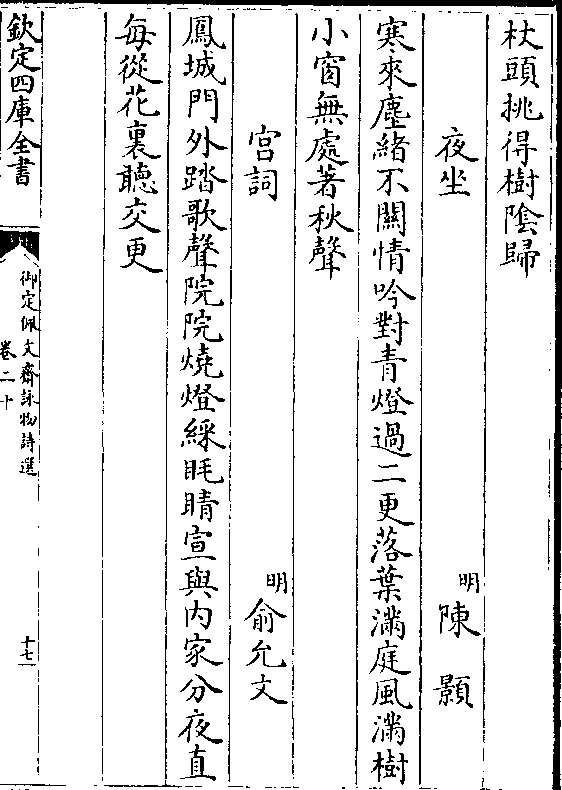 杖頭挑得樹陰歸
夜坐 明陳顥
寒來塵緒不關情吟對青燈過二更落葉滿庭風滿樹
小窗無處著秋聲
宫詞 明俞允文
鳳城門外踏歌聲院院燒燈綵眊晴宣與内家分夜直
每從花裏聽交更
欽定四庫全書
御定佩文齋詠物詩選
卷二十
十七